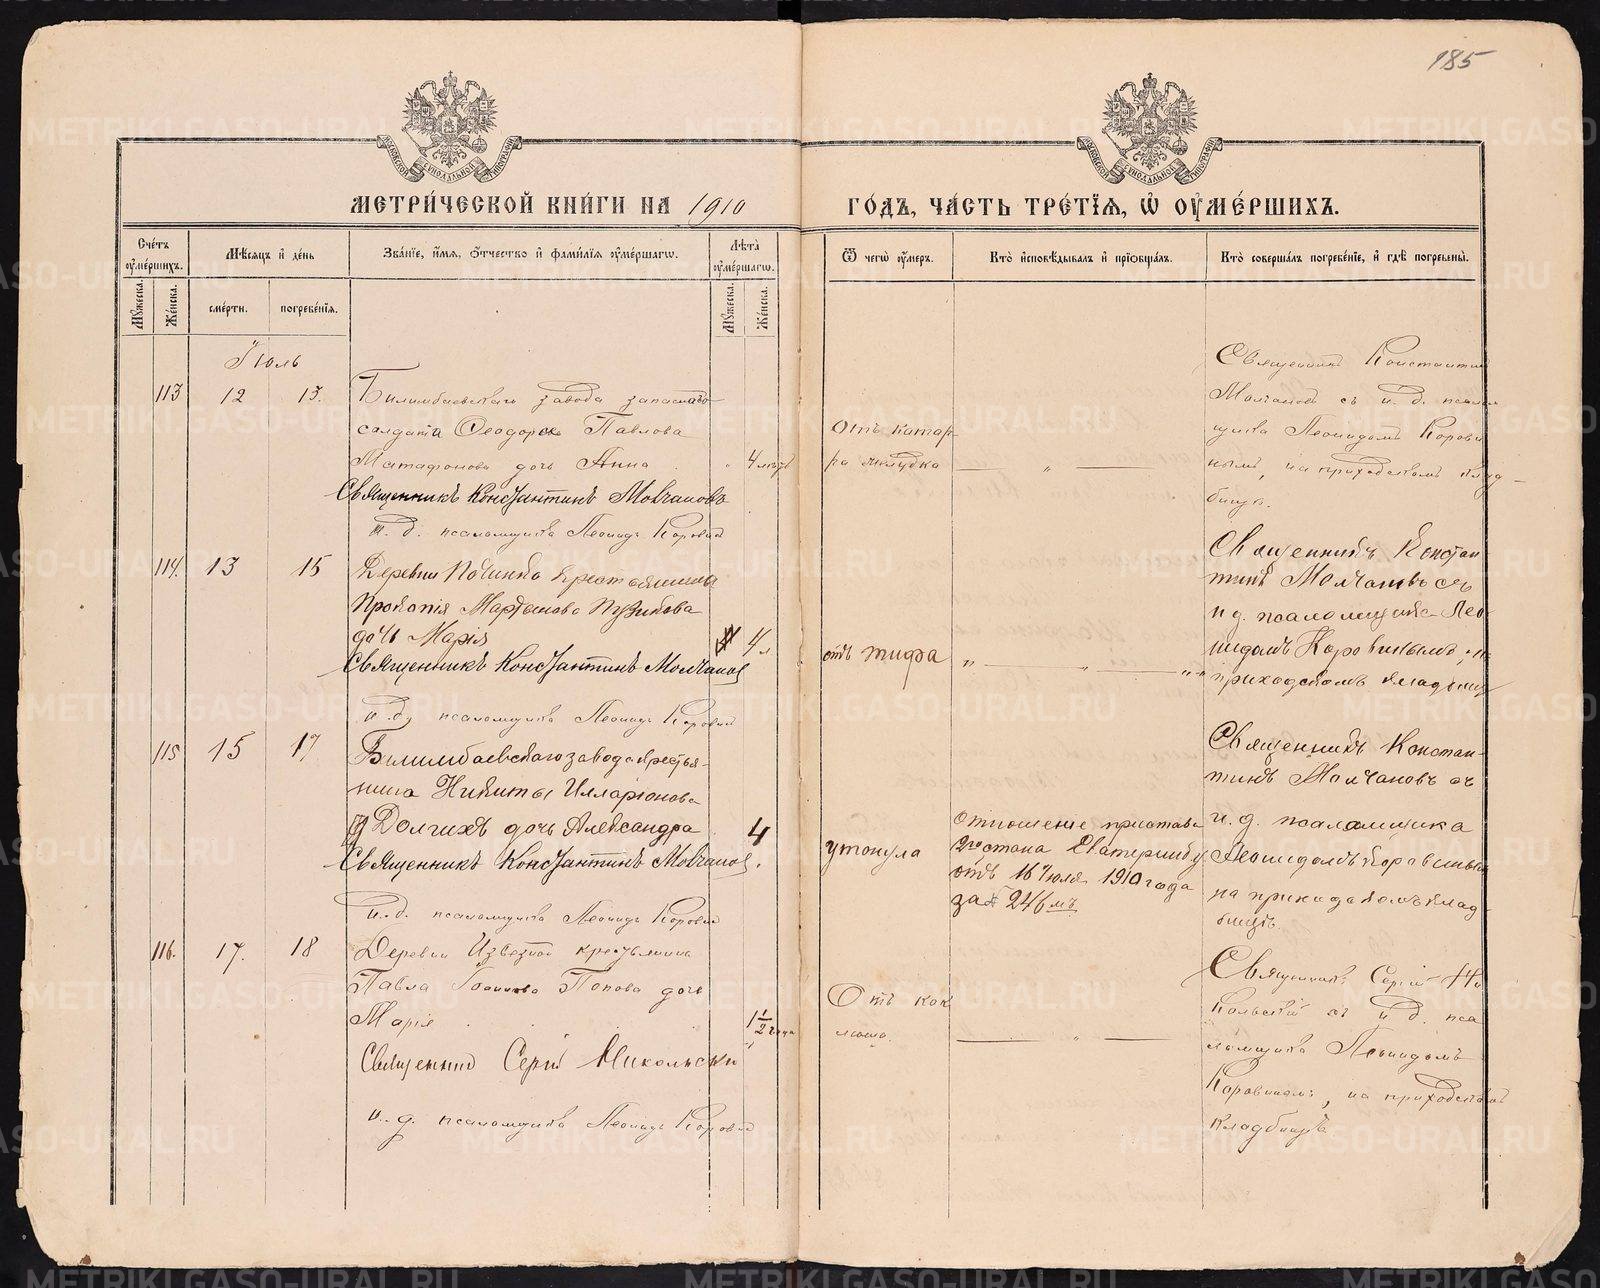 185
МОСКОВСКОЙ СѴНОДАЛЬНОЙ ТИПОГРАФІИ
МОСКОВСКОЙ СѴНОДАЛЬНОЙ ТИПОГРАФІИ
МЕТРИ́ЧЕСКОЙ КНИ́ГИ НА 1910
ГО́ДЪ, ЧА́СТЬ ТРЕ́ТІЯ, Ѽ ОУМЕ́РШИХЪ.
Сче́тъ оуме́ршихъ.
Мѣ́сяцъ и де́нь
Зва́ніе, и́мя, о́тчество и фами́лія оуме́ршагѡ.
Лѣта̀ оуме́ршагѡ.
Ѿ чегѡ̀ оу́меръ.
Кто̀ исповѣ́дывалъ и пріобща́лъ.
Кто̀ соверша́лъ погребе́ніе, и гдѣ̀ погребены̀.
Му́жеска.
Же́нска.
сме́рти.
погребе́нія.
Му́жеска.
Же́нска.
Іюль
113
12
13.
Билимбаевскаго завода запаснаго
солдата Ѳеодора Павлова
Матафонова дочь Анна
4 лѣтъ
Священникъ Константинъ Молчановъ
и. д. псаломщика Леонидъ Коровин
Отъ катар-
ра желудка
Священник Константин
Молчанов съ и. д. псалом
щика Леонидомъ Корови
нымъ, на приходскомъ клад-
бищѣ.
114.
13
15
Деревни Починка крестьянина
Прокопія Мартемова Пузикова
дочь Марія
4 л
Священникъ Константинъ Молчанов
и. д. псаломщика Леонидъ Коровин
отъ тифа
Священникъ Констан
тинъ Молчановъ съ
и д. псаломщика Лео
нидомъ Коровинымъ, на
приходскомъ кладбищѣ
115
15
17
Билимбаевскаго завода крестья-
нина Никиты Илларіонова
Долгихъ дочь Александра
4
Священникъ Константинъ Молчанов.
и. д. псаломщика Леонидъ Коровин
утонула
отношеніе пристава
2го стана Екатеринбу
отъ 16 Іюля 1910 года
за № 246 мъ
Священникъ Констан-
тинъ Молчановъ съ
и. д. псаломщика
Леонидомъ Коровиным
на приходскомъ клад
бищѣ.
116.
17.
18
Деревни Извезной крестьянина
Павла Іоаннова Попова дочь
Марія
1 1/2 года
Священник Сергій Никольскій
и. д. псаломщика Леонидъ Коровин
Отъ кок
люша.
Священникъ Сергій Ни
кольскій съ и. д. пса
ломщика Леонидомъ
Коровиным, на приходскомъ
кладбищѣ